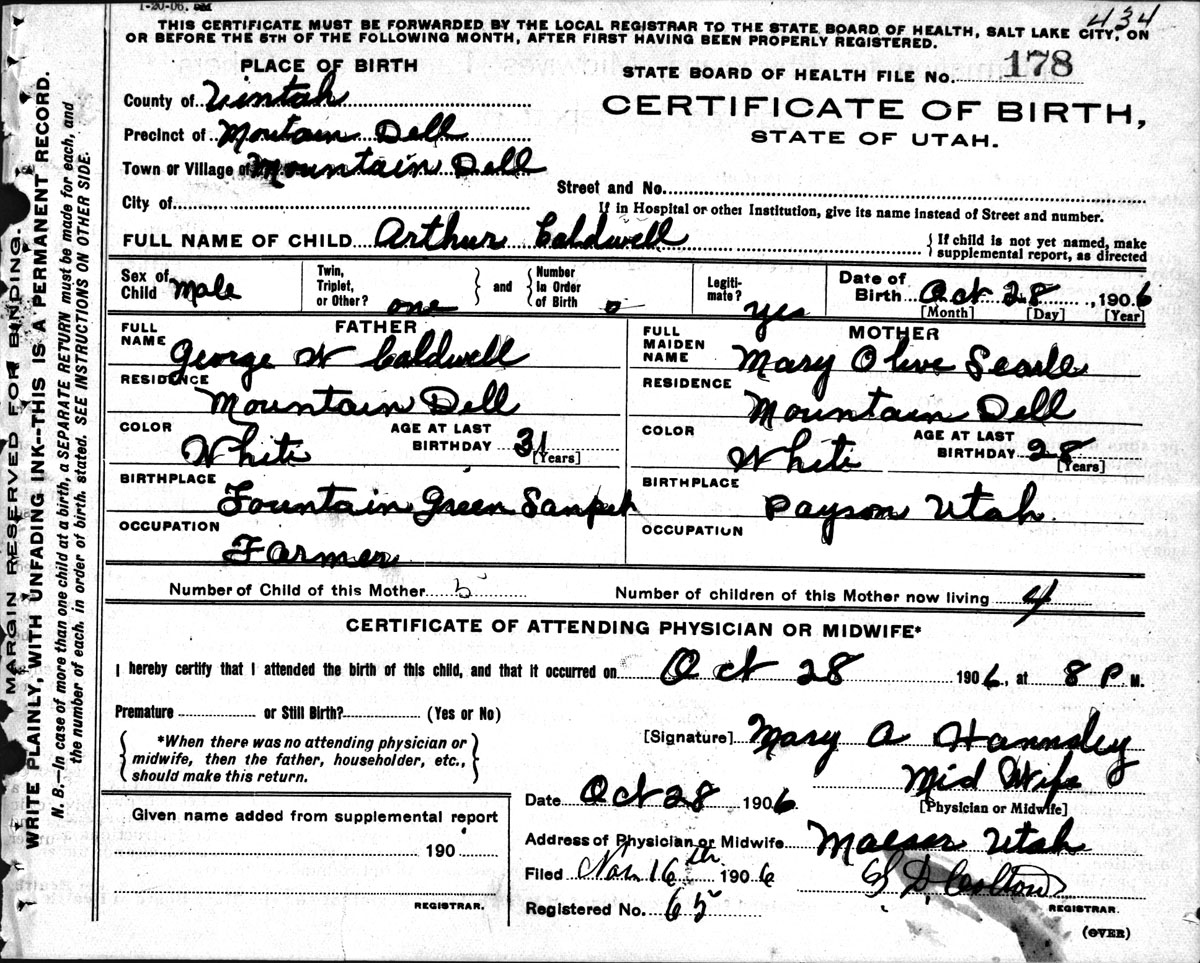 1-20-06. 5M
434
THIS CERTIFICATE MUST BE FORWARDED BY THE LOCAL REGISTRAR TO THE STATE BOARD OF HEALTH, SALT LAKE CITY, ON
OR BEFORE THE 5TH OF THE FOLLOWING MONTH, AFTER FIRST HAVING BEEN PROPERLY REGISTERED.
PLACE OF BIRTH
STATE BOARD OF HEALTH FILE NO. 178
County of Uintah
CERTIFICATE OF BIRTH,
STATE OF UTAH.
Precinct of Moutain Dell
Town or Village of Mountain Dell
Street and No.
City of
If in Hospital or other Institution, give its name instead of Street and number.
FULL NAME OF CHILD Arthur Caldwell
{ If child is not yet named, make
supplemental report, as directed
Sex of Child Male
Twin, Triplet, or Other? one
and
Number In Order of Birth o
Legiti-mate? yes
Date of Birth Oct 28, 1906
[Month] [Day] [Year]
FATHER
FULL NAME George W Caldwell
RESIDENCE
Mountain Dell
COLOR White
AGE AT LAST BIRTHDAY 31
[Years]
BIRTHPLACE
Fountain Green Sanpeh
OCCUPATION
Farmer
MOTHER
FULL MAIDEN NAME Mary Olive Searle
RESIDENCE
Mountain Dell
COLOR White
AGE AT LAST BIRTHDAY 28
[Years]
BIRTHPLACE
Payson Utah
OCCUPATION
Number of Child of this Mother 5
Number of children of this Mother now living 4
CERTIFICATE OF ATTENDING PHYSICIAN OR MIDWIFE*
I hereby certify that I attended the birth of this child, and that it occurred on Oct 28 1906, at 8 P M.
Premature or Still Birth? (Yes or No)
*When there was no attending physician or
midwife, then the father, householder, etc.,
should make this return.
[Signature] Mary A Hannsley
Mid Wife
[Physician or Midwife]
Date Oct 28 1906
Given name added from supplemental report
190
REGISTRAR.
Address of Physician or Midwife Maeser Utah
Filed Nov. 16th 1906
S D Colton
REGISTRAR.
Registered No. 65
(OVER)
MARGIN RESERVED FOR BINDING.
WRITE PLAINLY, WITH UNFADING INK--THIS IS A PERMANENT RECORD.
N. B.--In case of more than one child at a birth, a SEPARATE RETURN must be made for each, and
the number of each, in order of birth, stated. SEE INSTRUCTIONS ON OTHER SIDE.